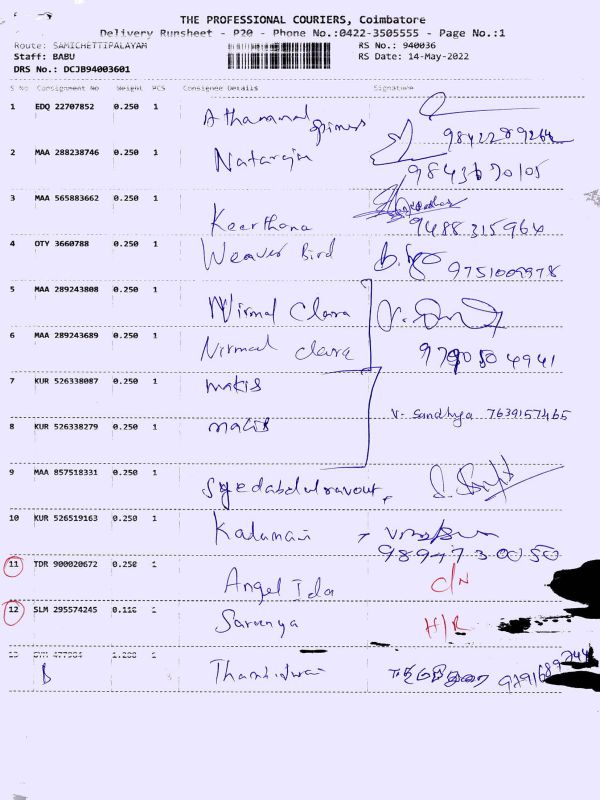 THE PROFESSIONAL COURIERS, Coimbatore
Delivery Runsheet - P20 - Phone No.:0422-3505555 - Page No.:1
Route: SAMICHETTIPALAYAM
RS No.: 940036
Staff: BABU
RS Date: 14-May-2022
DRS No.: DCJB94003601
S No Consignment No Weight PCS Consignee Details Signature
1 EDQ 22707852 0.250 1
2 MAA 288238746 0.250 1 Nataraja
3 MAA 565883662 0.250 1 Keerthana 9488315964
4 OTY 3660788 0.250 1 Weaver Bird 9751009978
5 MAA 289243808 0.250 1 Nirmal Clara
6 MAA 289243689 0.250 1 Nirmal clara
7 KUR 526338087 0.250 1 makis
8 KUR 526338279 0.250 1 V. Sandhya 7639157465
9 MAA 857518331 0.250 1 Syedabdulravout
10 KUR 526519163 0.250 1 Kalamani 9894730050
11 TDR 900020672 0.250 1 Angel Ida C/N
12 SLM 295574245 0.116 1 Saranya H/R